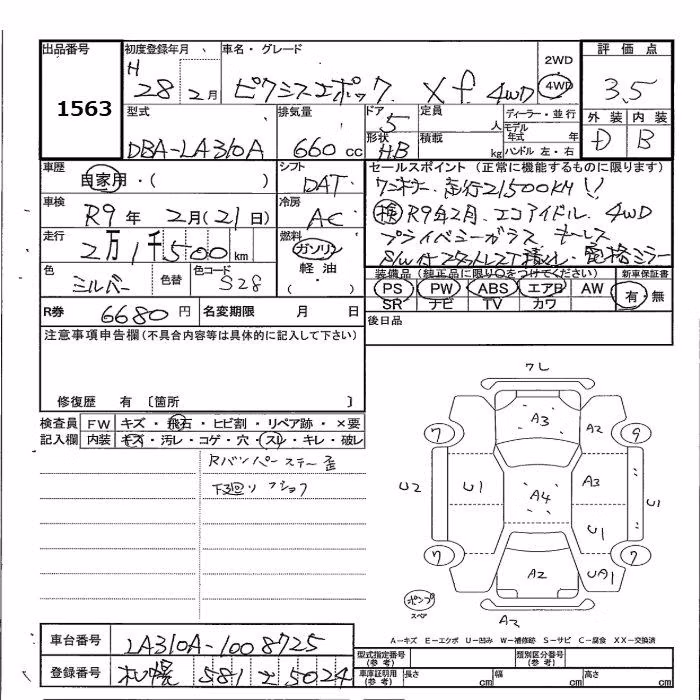 出品番号 初度登録年月 車名・グレード 2WD 評価点
1563 H 28年 2月 ピクシスエポック Xf 4WD 4WD 3.5
型式 排気量 ドア 定員 ディーラー・並行 外装 内装
DBA-LA310A 660cc 5 人 モデル年式 年 D B
形状 HB 積載 kg ハンドル 左・右
車歴 自家用・( ) シフト DAT セールスポイント (正常に機能するものに限ります)
ワンオーナー 走行21500KM!!
車検 R9年 2月(21日) 冷房 AC 検 R9年2月. エコアイドル. 4WD
走行 2万1千500km 燃料 ガソリン プライバシーガラス キーレス
軽油 ・( ) S/W付スタットレス 積込. 電格ミラー
色 シルバー 色替 色コード S28
装備品 (純正品に限り○をつけてください) 新車保証書
PS PW ABS エアB AW 有・無
SR ナビ TV カワ
R券 6680円 名変期限 月 日 後日品
注意事項申告欄(不具合内容等は具体的に記入して下さい)
修復歴 有 〔箇所 〕
検査員記入欄 FW キズ・飛石・ヒビ割・リペア跡・×要
内装 キズ・汚レ・コゲ・穴・スレ・キレ・破レ
Rバンパーステー歪
下廻り フショク
フレ
7 A3 A2 9
U2 U1 A4 A3 U1
U1
7 A2 UA1 7
ポンプ
スペア A2
A-キズ E-エクボ U-凹み W-補修跡 S-サビ C-腐食 XX-交換済
車台番号 LA310A-1008725
登録番号 札幌 581 を 5024
型式指定番号(参考) 類別区分番号(参考)
車庫証明用(参考) 長さ cm 幅 cm 高さ cm